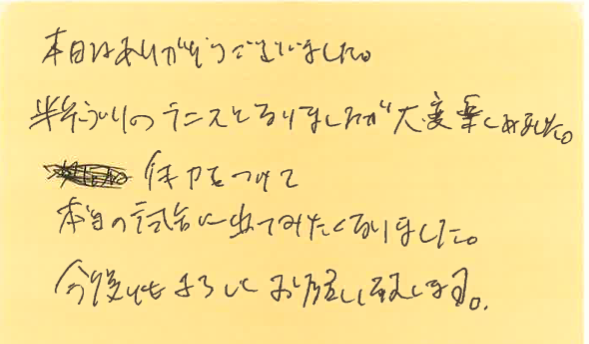 本日はありがとうございました。
半年ぶりのテニスとなりましたが大変楽しめました。
体力をつけて
本当の試合に出てみたくなりました。
今後ともよろしくお願い致します。